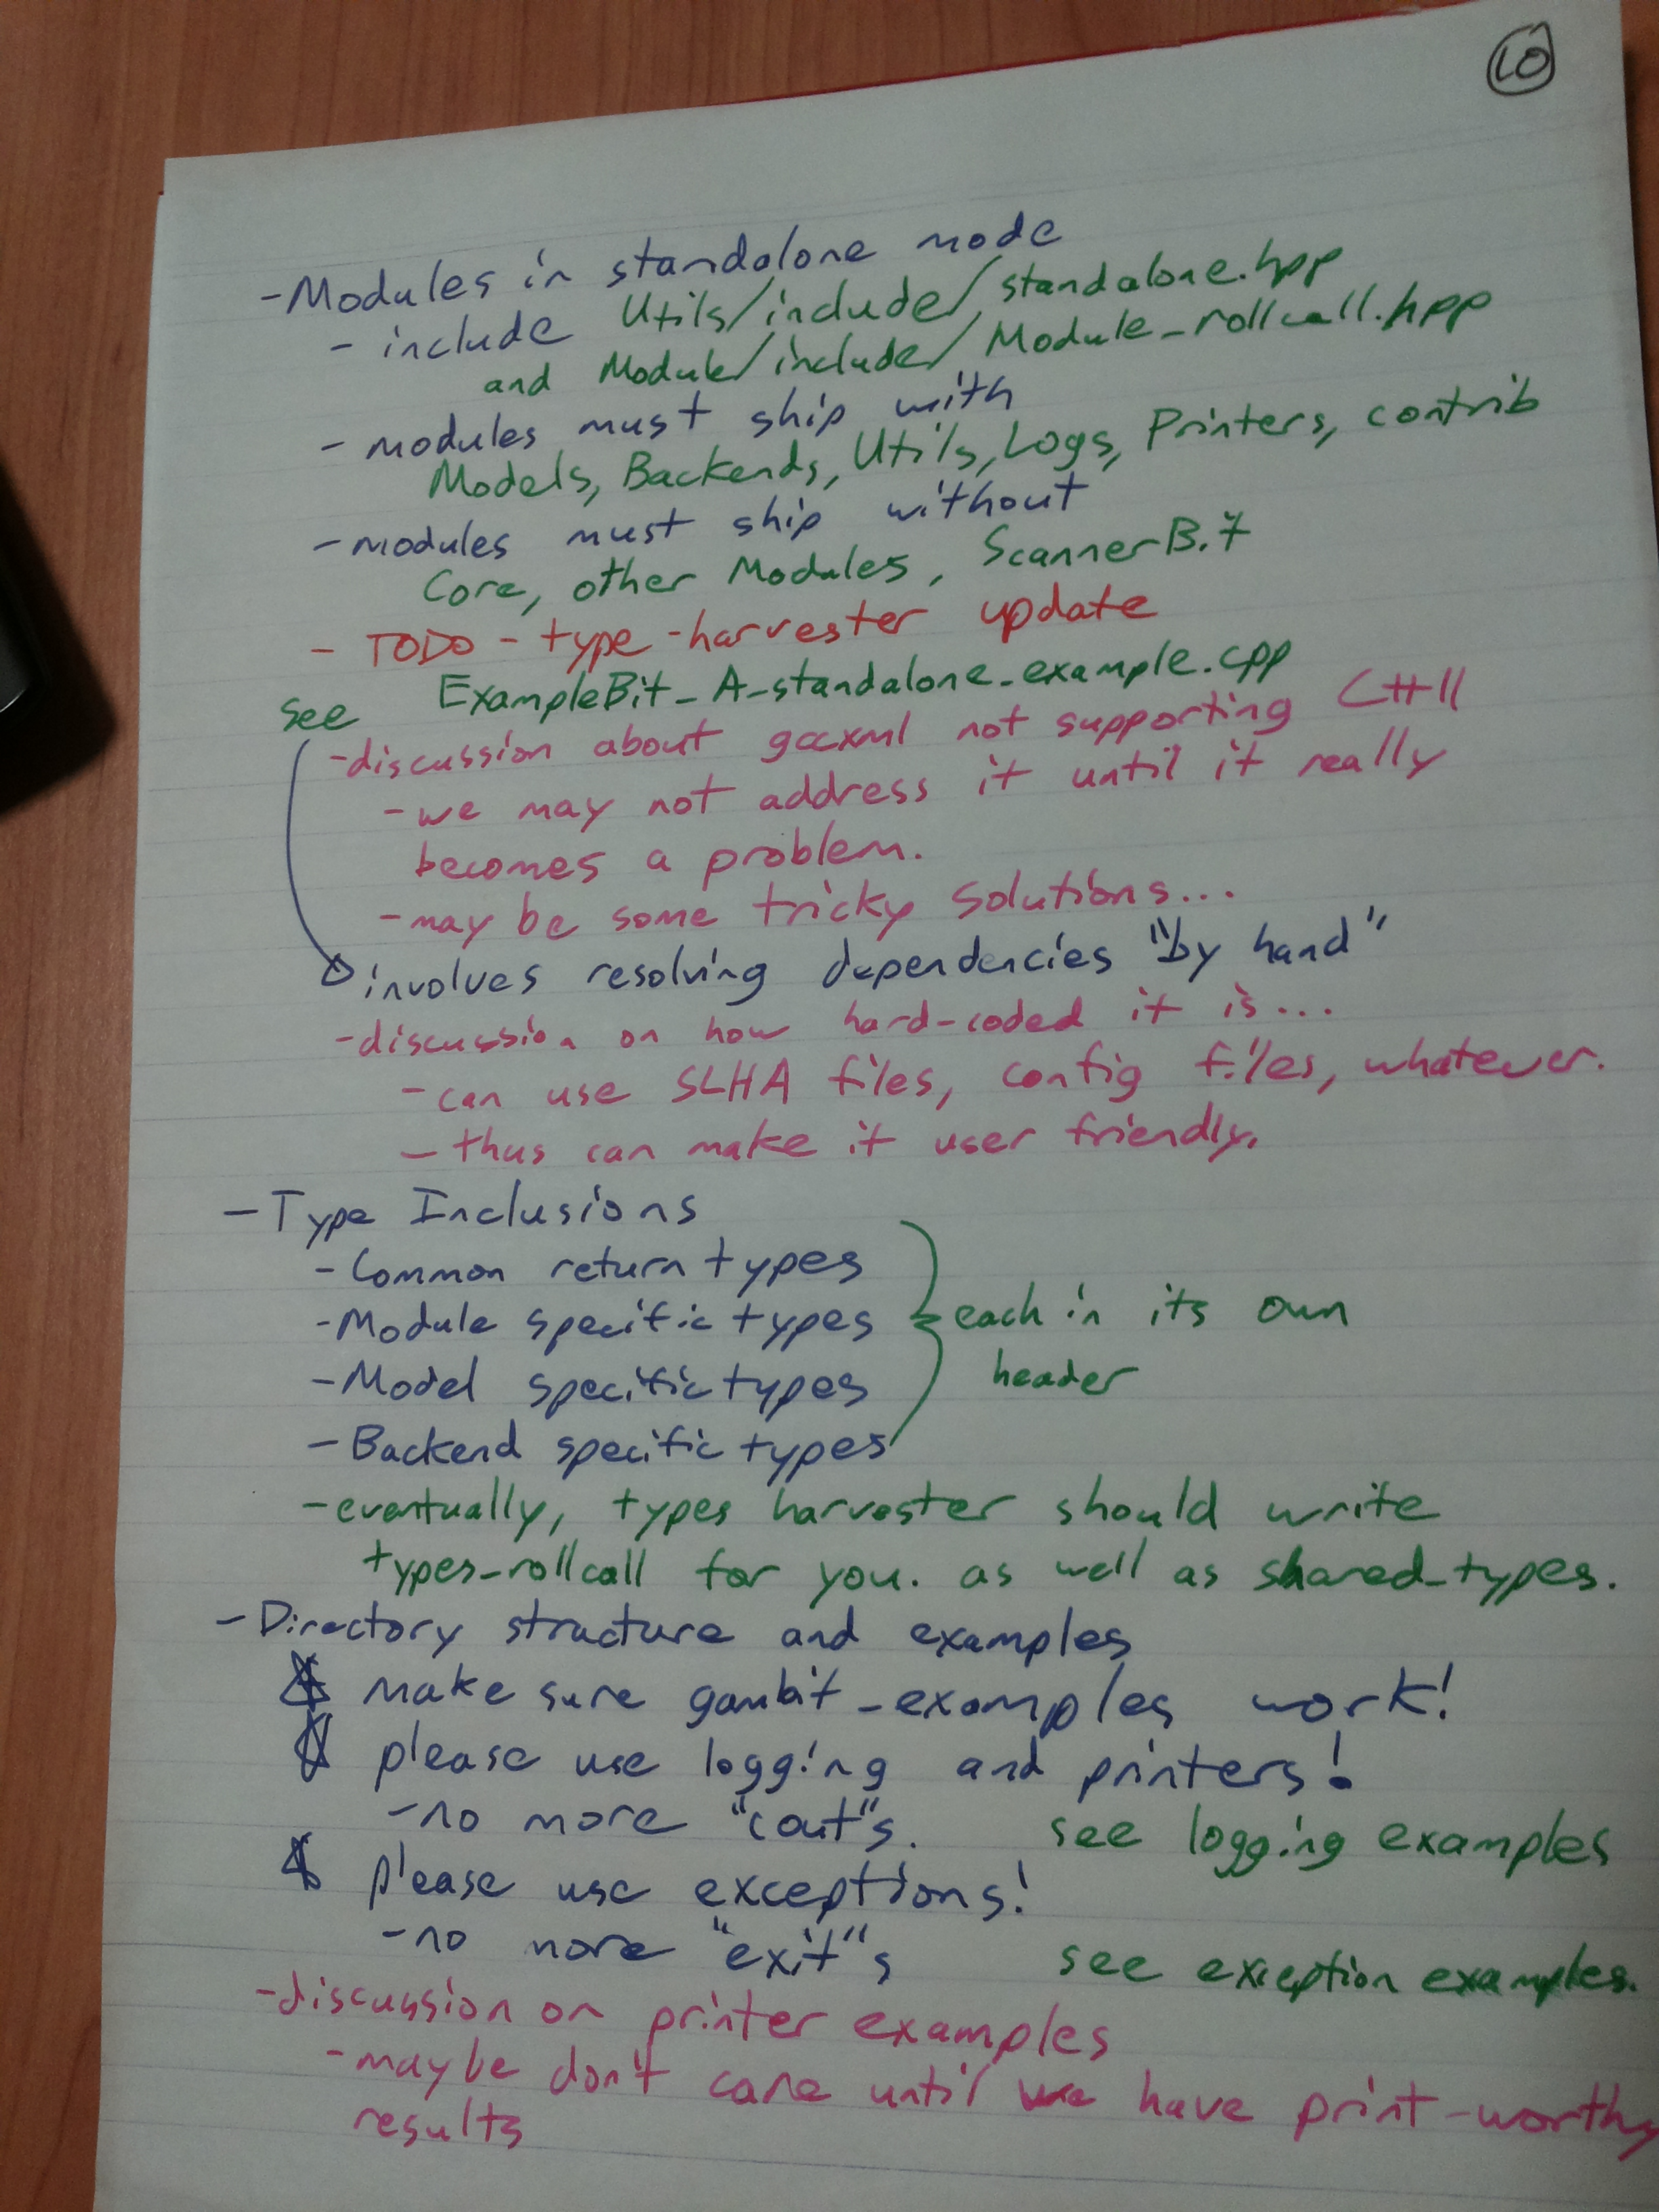 10
- Modules in standalone mode
- include Utils/include/standalone.hpp
and Module/include/Module_rollcall.hpp
- modules must ship with
Models, Backends, Utils, Logs, Printers, contrib
- modules must ship without
Core, other Modules, ScannerBit
- TODO - type-harvester update
see ExampleBit_A_standalone_example.cpp
- discussion about gccxml not supporting C++11
- we may not address it until it really
becomes a problem.
- may be some tricky solutions...
involves resolving dependencies "by hand"
- discussion on how hard-coded it is...
- can use SLHA files, config files, whatever.
- thus can make it user friendly.
- Type Inclusions
- Common return types
- Module specific types
- Model specific types
- Backend specific types
each in its own
header
- eventually, types harvester should write
types_rollcall for you. as well as shared_types.
- Directory structure and examples
make sure gambit_examples work!
please use logging and printers!
- no more "cout"s. see logging examples
please use exceptions!
- no more "exit"s see exception examples.
- discussion on printer examples
- maybe don't care until we have print-worthy
results